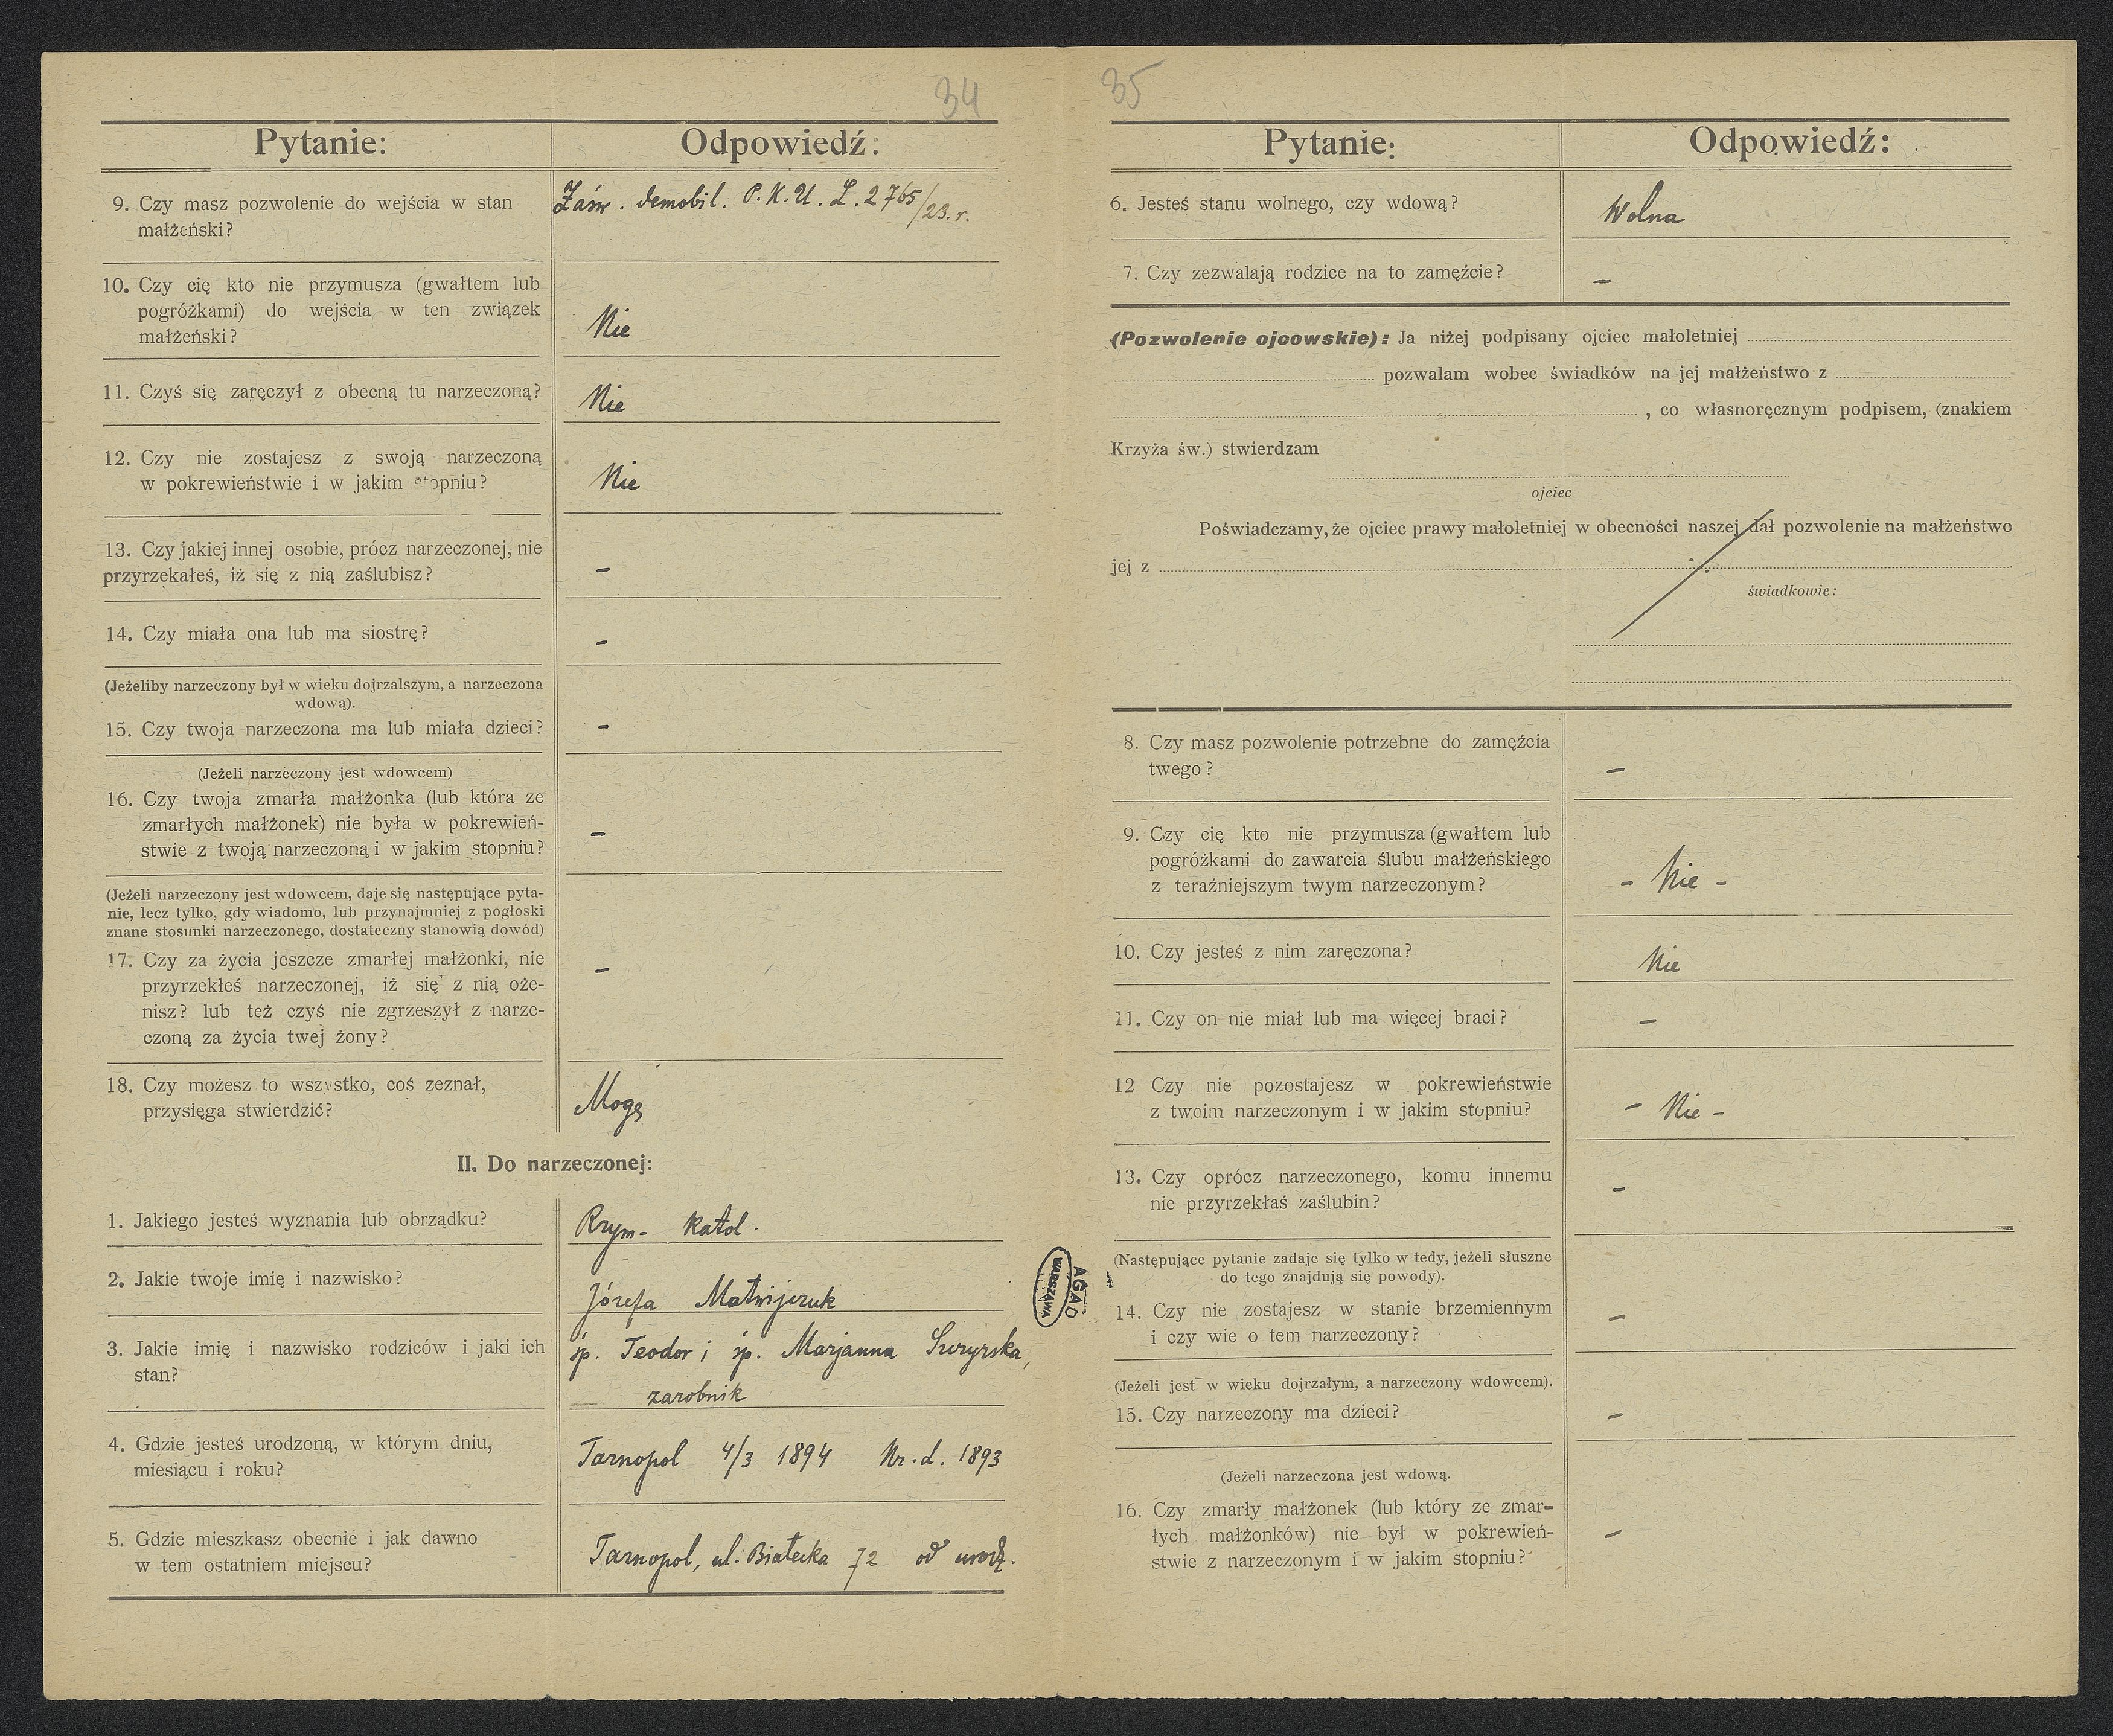 34
Pytanie: Odpowiedź:
9. Czy masz pozwolenie do wejścia w stan
małżeński?
Zaśw. demobil. P.K.U. L. 2765/23. r.
10. Czy cię kto nie przymusza (gwałtem lub
pogróżkami) do wejścia w ten związek
małżeński?
Nie
11. Czyś się zaręczył z obecną tu narzeczoną?
Nie
12. Czy nie zostajesz z swoją narzeczoną
w pokrewieństwie i w jakim stopniu?
Nie
13. Czy jakiej innej osobie, prócz narzeczonej, nie
przyrzekałeś, iż się z nią zaślubisz?
–
14. Czy miała ona lub ma siostrę?
–
(Jeżeliby narzeczony był w wieku dojrzalszym, a narzeczona
wdową).
15. Czy twoja narzeczona ma lub miała dzieci?
–
(Jeżeli narzeczony jest wdowcem)
16. Czy twoja zmarła małżonka (lub która ze
zmarłych małżonek) nie była w pokrewień-
stwie z twoją narzeczoną i w jakim stopniu?
–
(Jeżeli narzeczony jest wdowcem, daje się następujące pyta-
nie, lecz tylko, gdy wiadomo, lub przynajmniej z pogłoski
znane stosunki narzeczonego, dostateczny stanowią dowód)
17. Czy za życia jeszcze zmarłej małżonki, nie
przyrzekłeś narzeczonej, iż się z nią oże-
nisz? lub też czyś nie zgrzeszył z narze-
czoną za życia twej żony?
–
18. Czy możesz to wszystko, coś zeznał,
przysięga stwierdzić?
Mogę
II. Do narzeczonej:
1. Jakiego jesteś wyznania lub obrządku?
Rzym- katol.
2. Jakie twoje imię i nazwisko?
Józefa Matwijczuk
3. Jakie imię i nazwisko rodziców i jaki ich
stan?
śp. Teodor i śp. Marjanna
zarobnik
4. Gdzie jesteś urodzoną, w którym dniu,
miesiącu i roku?
Tarnopol 4/3 1894 Nr. d. 1893
5. Gdzie mieszkasz obecnie i jak dawno
w tem ostatniem miejscu?
Tarnopol, ul. Białecka 72 od urodz.
AGAD
WARSZAWA
35
Pytanie: Odpowiedź:
6. Jesteś stanu wolnego, czy wdową?
Wolna
7. Czy zezwalają rodzice na to zamęźcie?
–
(Pozwolenie ojcowskie): Ja niżej podpisany ojciec małoletniej
pozwalam wobec świadków na jej małżeństwo z
, co własnoręcznym podpisem, (znakiem
Krzyża św.) stwierdzam
ojciec
Poświadczamy, że ojciec prawy małoletniej w obecności naszej dał pozwolenie na małżeństwo
jej z
świadkowie:
8. Czy masz pozwolenie potrzebne do zamęźcia
twego?
–
9. Czy cię kto nie przymusza (gwałtem lub
pogróżkami do zawarcia ślubu małżeńskiego
z teraźniejszym twym narzeczonym?
– Nie –
10. Czy jesteś z nim zaręczona?
Nie
11. Czy on nie miał lub ma więcej braci?
–
12 Czy nie pozostajesz w pokrewieństwie
z twoim narzeczonym i w jakim stopniu?
– Nie –
13. Czy oprócz narzeczonego, komu innemu
nie przyrzekłaś zaślubin?
–
(Następujące pytanie zadaje się tylko w tedy, jeżeli słuszne
do tego znajdują się powody).
14. Czy nie zostajesz w stanie brzemiennym
i czy wie o tem narzeczony?
–
(Jeżeli jest w wieku dojrzałym, a narzeczony wdowcem).
15. Czy narzeczony ma dzieci?
–
(Jeżeli narzeczona jest wdową.
16. Czy zmarły małżonek (lub który ze zmar-
łych małżonków) nie był w pokrewień-
stwie z narzeczonym i w jakim stopniu?
–